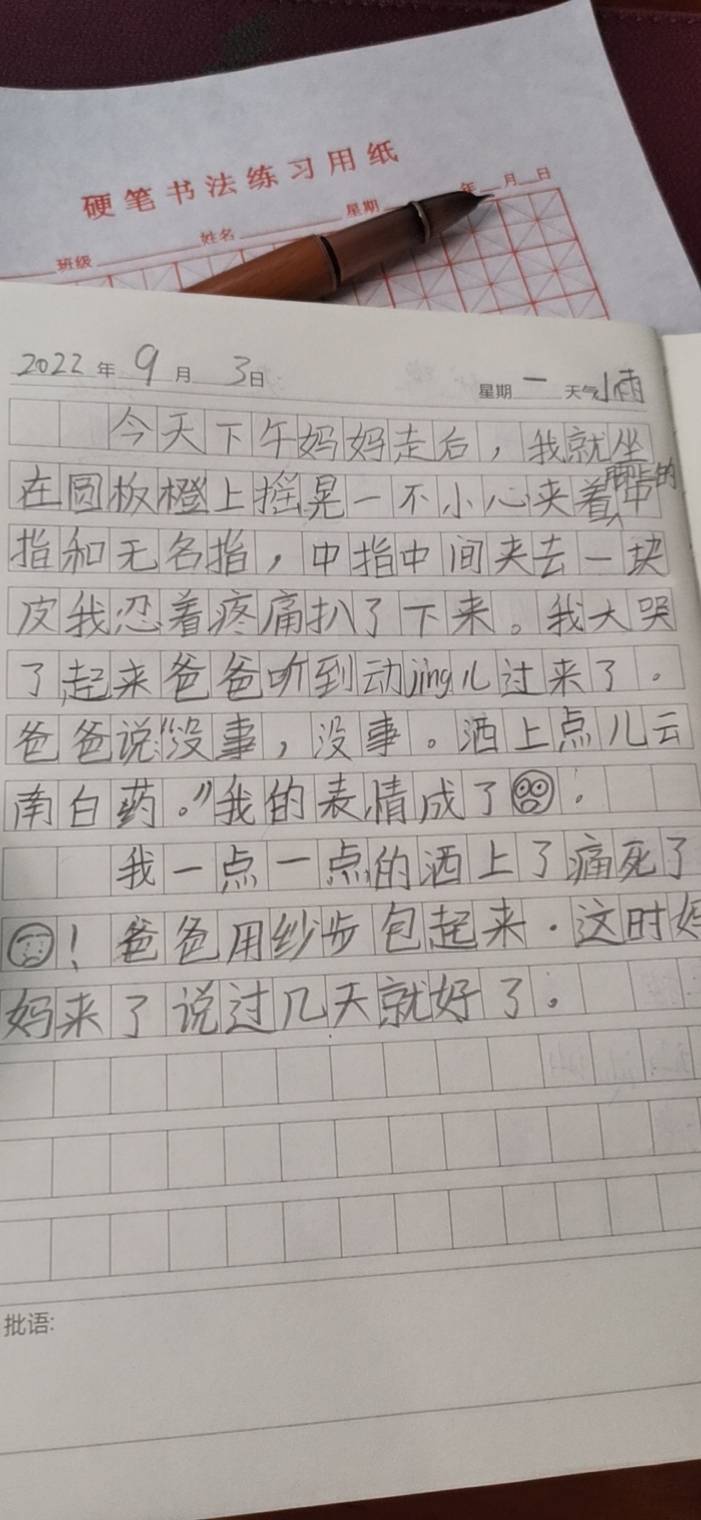 硬笔书法练习用纸
班级 姓名 星期 年 月 日
2022 年 9 月 3日 星期 一 天气 小雨
今天下午妈妈走后，我就坐
在圆板橙上摇晃一不小心夹着中
指和无名指，中指中间夹去一块
皮我忍着疼痛扒了下来。我大哭
了起来爸爸听到动jing儿过来了。
爸爸说:"没事，没事。洒上点儿云
南白药。"我的表情成了 .
我一点一点的洒上了痛死了
！爸爸用纱步包起来.这时妈
妈来了说过几天就好了。
批语: